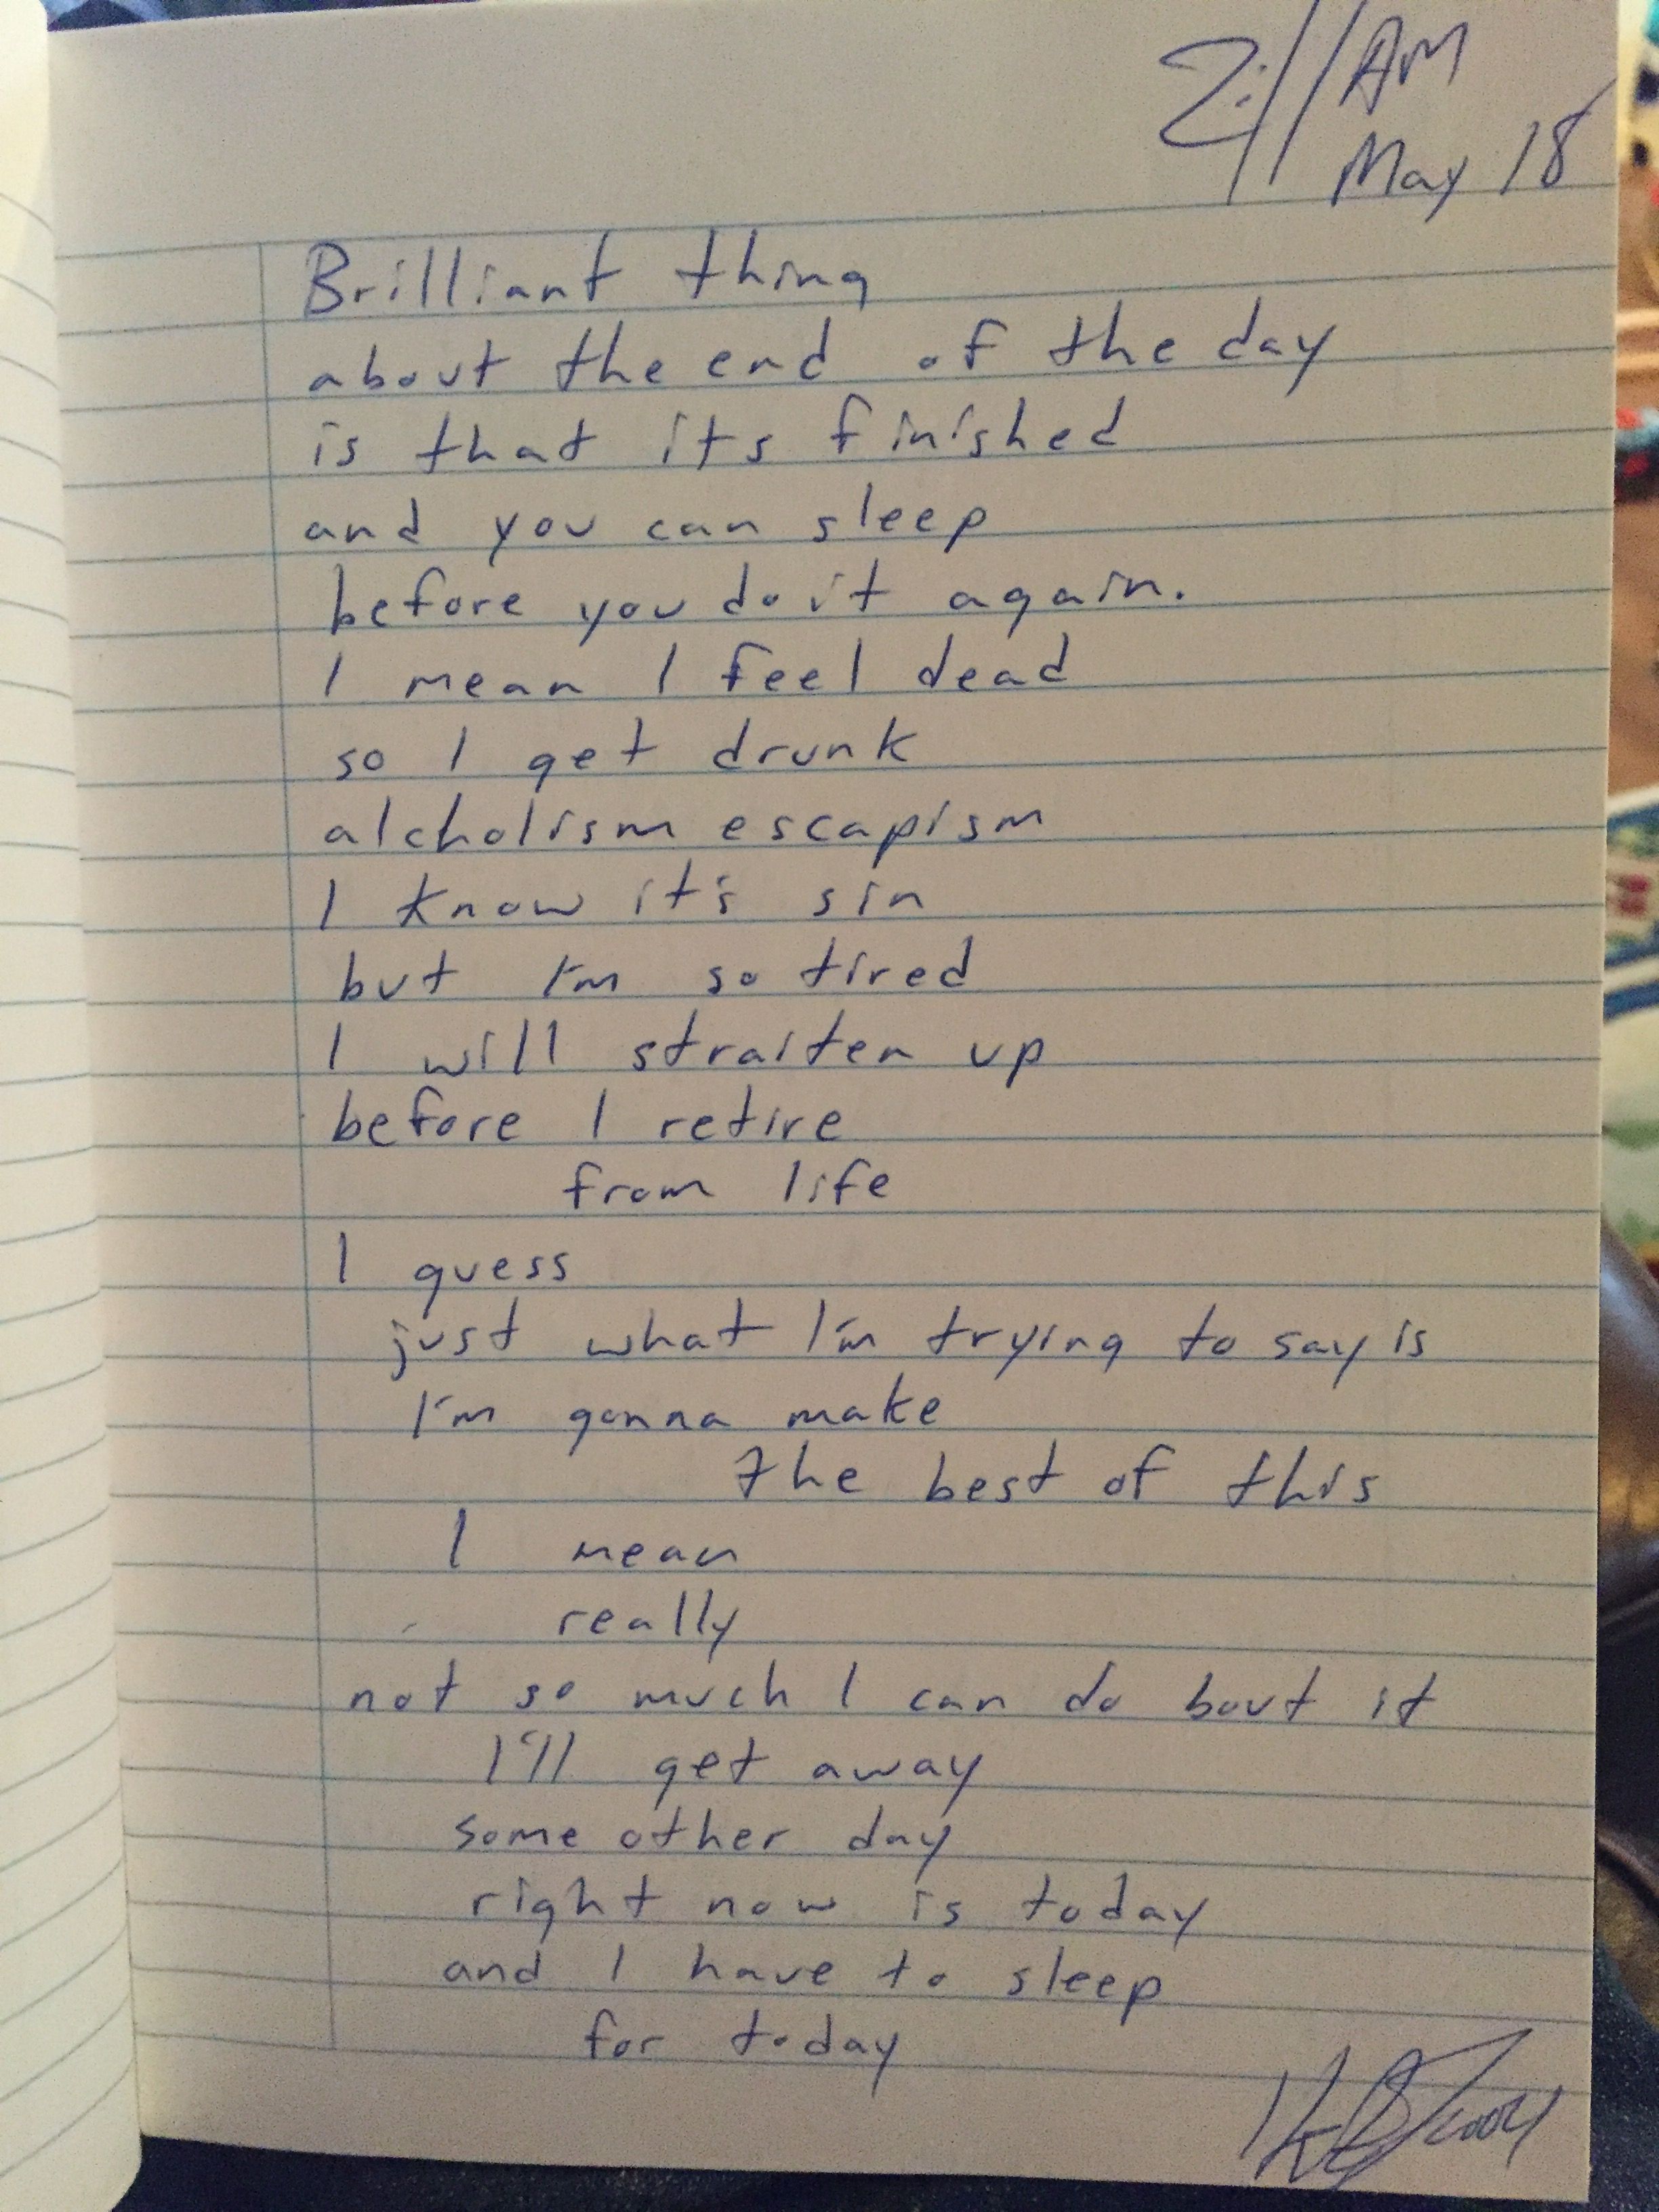 2:11 AM
May 18
Brilliant thing
about the end of the day
is that it's finished
and you can sleep
before you do it again.
I mean I feel dead
so I get drunk
alcholism escapism
I know it's sin
but I'm so tired
I will straiten up
before I retire
from life
I guess
just what I'm trying to say is
I'm gonna make
the best of this
I mean
really
not so much I can do bout it
I'll get away
some other day
right now is today
and I have to sleep
for today